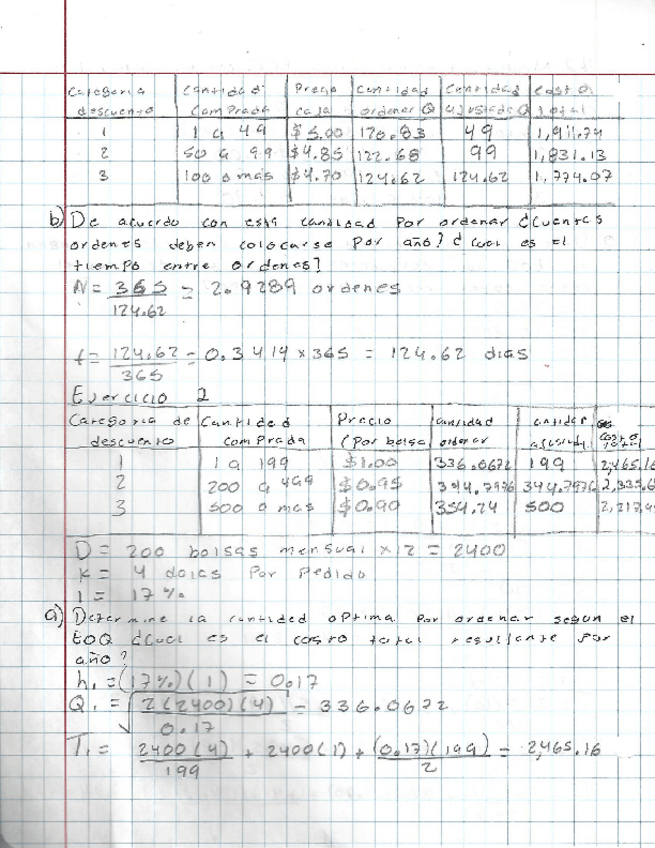 Categoria Cantidad Precio Cantidad Cantidad Costo
descuento Comprada caja ordenar Q ajustada Q total
1 1 a 49 $5.00 120.83 49 1,911.74
2 50 a 99 $4.85 122.68 99 1,831.13
3 100 o mas $4.70 124.62 124.62 1,774.07
b) De acuerdo con esta cantidad por ordenar ¿Cuentas
ordenes deben colocarse por año? ¿cual es el
tiempo entre ordenes?
N = 365 = 2.9289 ordenes
124.62
t = 124.62 = 0.3414 x 365 = 124.62 dias
365
Ejercicio 2
Categoria de Cantidad Precio cantidad cantidad Costo
descuento comprada (por bolsa ordenar ajustada total
1 1 a 199 $1.00 336.0672 199 2,465.16
2 200 a 499 $0.95 344.7976 344.7976 2,335.6
3 500 o mas $0.90 354.24 500 2,217.4
D = 200 bolsas mensual x 12 = 2400
K = 4 dolcs Por Pedido
I = 17 %
a) Determine la cantidad optima por ordenar segun el
EOQ ¿Cual es el costo total resultante por
año?
h₁ = (17%)(1) = 0.17
Q₁ = √2(2400)(4) = 336.0672
0.17
T₁ = 2400(4) + 2400(1) + (0.17)(199) = 2,465.16
199 2